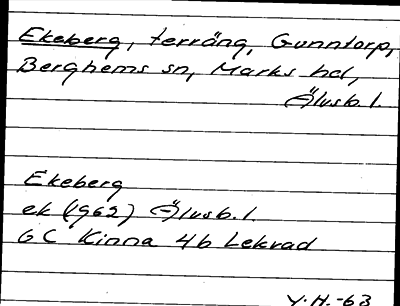 Ekeberg, terräng, Gunntorp,
Berghems sn, Marks hd,
Älvsb. l.
Ekeberg
ek (1962) Älvsb. l.
GC Kinna 4b Lekvad
Y. H. -63